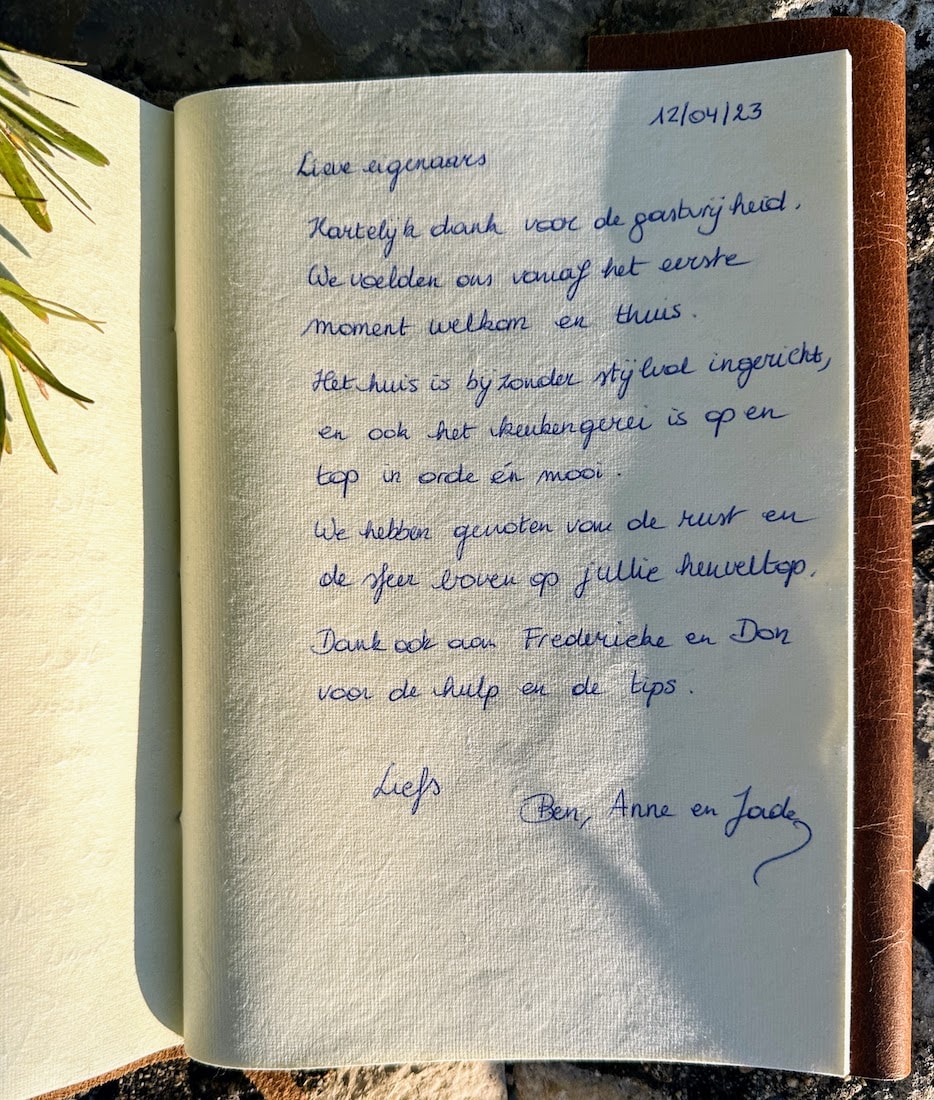 12/04/23
Lieve eigenaars
Hartelijk dank voor de gastvrijheid.
We voelden ons vanaf het eerste
moment welkom en thuis.
Het huis is bijzonder stijlvol ingericht,
en ook het keukengerei is op en
top in orde én mooi.
We hebben genoten van de rust en
de sfeer boven op jullie heuveltop.
Dank ook aan Frederieke en Don
voor de hulp en de tips.
Liefs
Ben, Anne en Jade